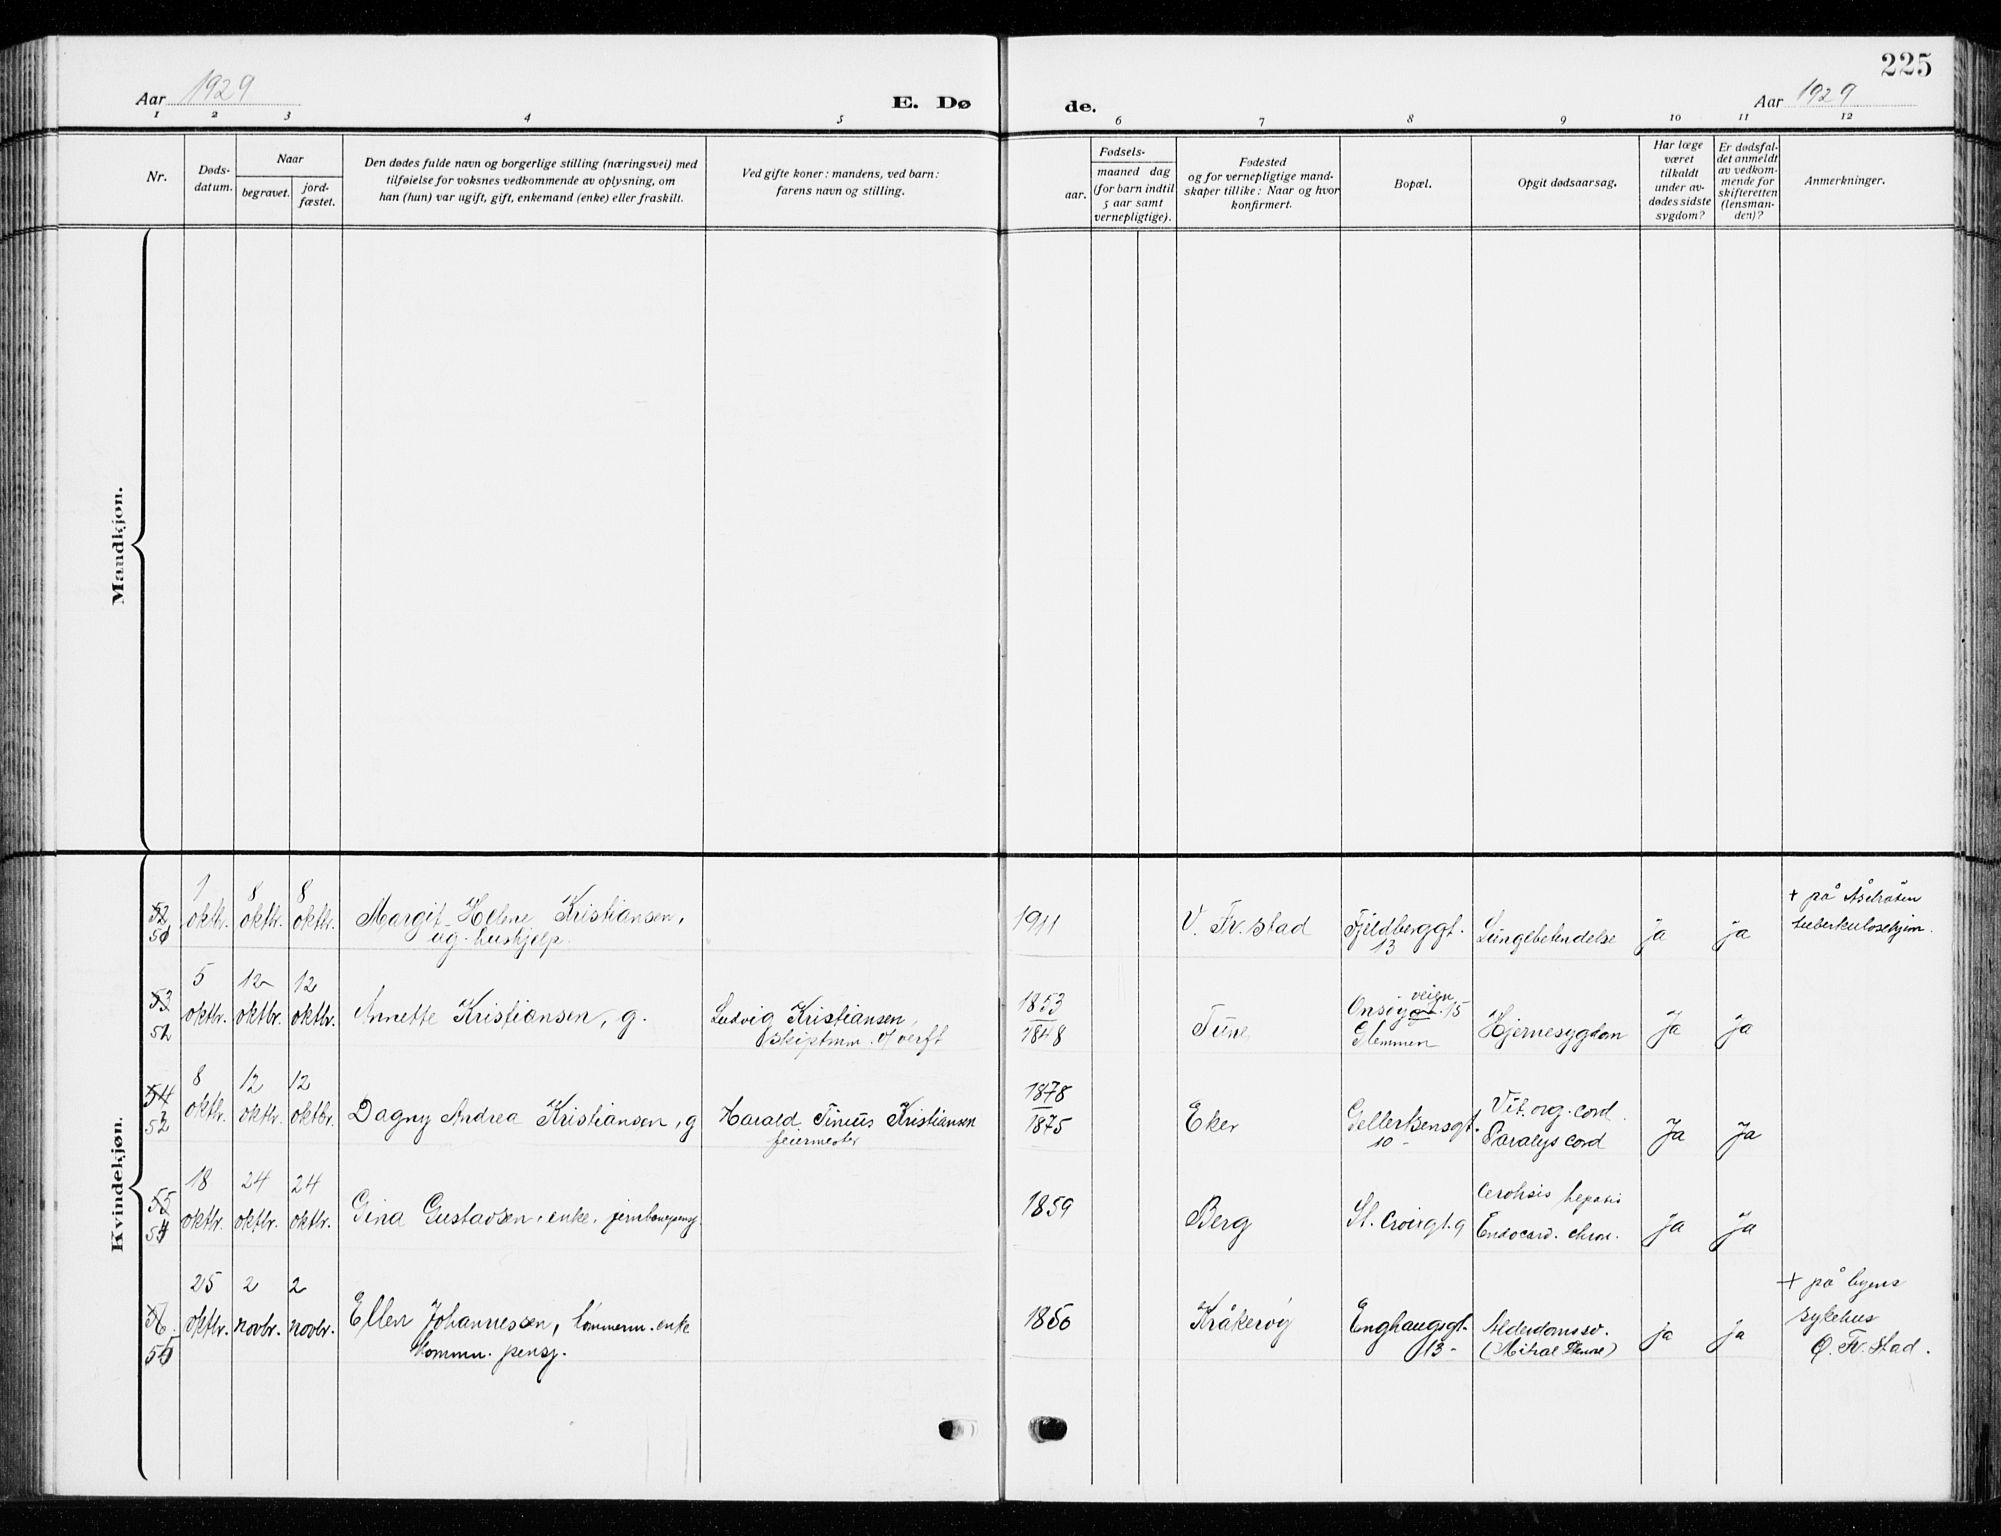 225
Aar 1929
E. Dø
de.
Aar 1929
1 2 3 4 5 6 7 8 9 10 11 12
Nr.
Døds-
datum.
Naar
begravet.
jord-
fæstet.
Den dødes fulde navn og borgerlige stilling (næringsvei) med
tilføielse for voksnes vedkommende av oplysning, om
han (hun) var ugift, gift, enkemand (enke) eller fraskilt.
Ved gifte koner: mandens, ved barn:
farens navn og stilling.
Fødsels-
aar.
maaned dag
(for barn indtil
5 aar samt
vernepligtige).
Fødested
og for vernepligtige mand-
skaper tillike: Naar og hvor
konfirmert.
Bopæl.
Opgit dødsaarsag.
Har læge
været
tilkaldt
under av-
dødes sidste
sygdom?
Er dødsfal-
det anmeldt
av vedkom-
mende for
skifteretten
(lensman-
den)?
Anmerkninger.
Mandkjøn.
Kvindekjøn.
52
51
1
oktbr.
8
oktbr.
8
oktbr.
Margit Helene Kristiansen,
ug. hushjelp.
1911
V. Fr.stad
Fjeldberggt.
13
Lungebetendelse
ja
ja
+ på
tuberkulosehjem.
53
52
5
oktbr.
12
oktbr.
12
oktbr.
Annette Kristiansen, g.
Ludvig Kristiansen,
skiptmm. o/verft
1853
1848
Tune
veien
Onsøygt. 15
Glemmen
Hjernesygdom
Ja
ja
54
53
8
oktbr.
12
oktbr.
12
oktbr.
Dagny Andrea Kristiansen, g
Harald Tinius Kristiansen
feiermester
1878
1875
Eker
Gellertsensgt.
10 -
Vit. org. cord.
Paralys cord
Ja
Ja
55
54
18
oktbr.
24
oktbr.
24
oktbr.
Gina Gustavsen, enke, jernbanepensj.
1859
Berg
St. Croixgt. 9
Cerohsis hepatis
Endocard. chron.
Ja
Ja
56
55
25
oktbr.
2
novbr.
2
novbr.
Ellen Johannessen, tømmerm. enke
kommu. pensj.
1850
Kråkerøy
Enghaugsgt.
13 -
Alderdomssv.
(Mitral Stenose)
ja
ja
+ på byens
sykehus
Ø. Fr. stad.